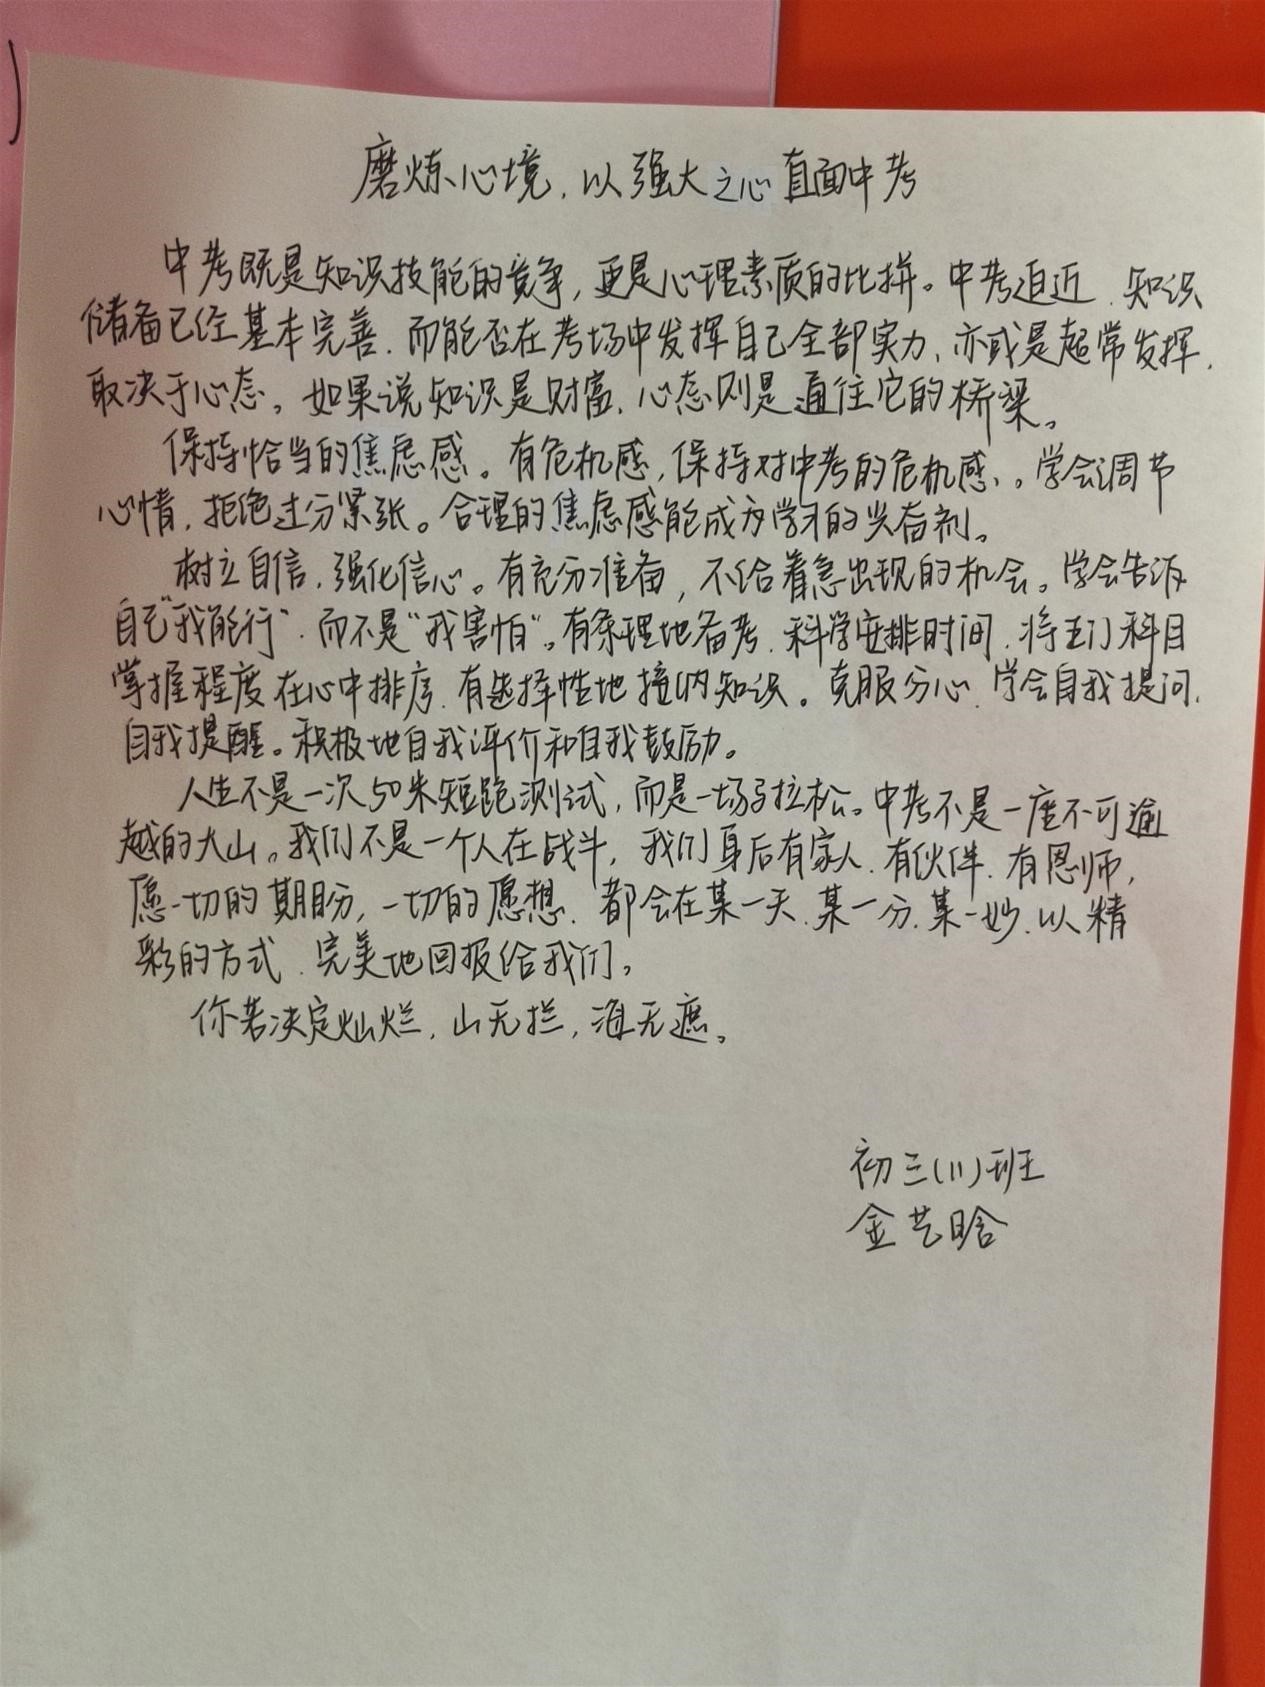 磨炼心境，以强大之心直面中考
中考既是知识技能的竞争，更是心理素质的比拼。中考迫近，知识
储备已经基本完善，而能否在考场中发挥自己全部实力、亦或是超常发挥，
取决于心态。如果说知识是财富，心态则是通往它的桥梁。
保持恰当的焦虑感。有危机感，保持对中考的危机感、。学会调节
心情，拒绝过分紧张。合理的焦虑感能成为学习的兴奋剂。
树立自信，强化信心。有充分准备，不给着急出现的机会。学会告诉
自己“我能行”，而不是“我害怕”。有条理地备考，科学安排时间，将五门科目
掌握程度在心中排序，有选择性地接纳知识。克服分心，学会自我提问，
自我提醒。积极地自我评价和自我鼓励。
人生不是一次50米短跑测试，而是一场马拉松。中考不是一座不可逾
越的大山。我们不是一个人在战斗，我们身后有家人、有伙伴、有恩师，
愿一切的期盼，一切的愿想，都会在某一天、某一分、某一妙、以精
彩的方式、完美地回报给我们。
你若决定灿烂，山无拦，海无遮。
初三(11)班
金艺晗